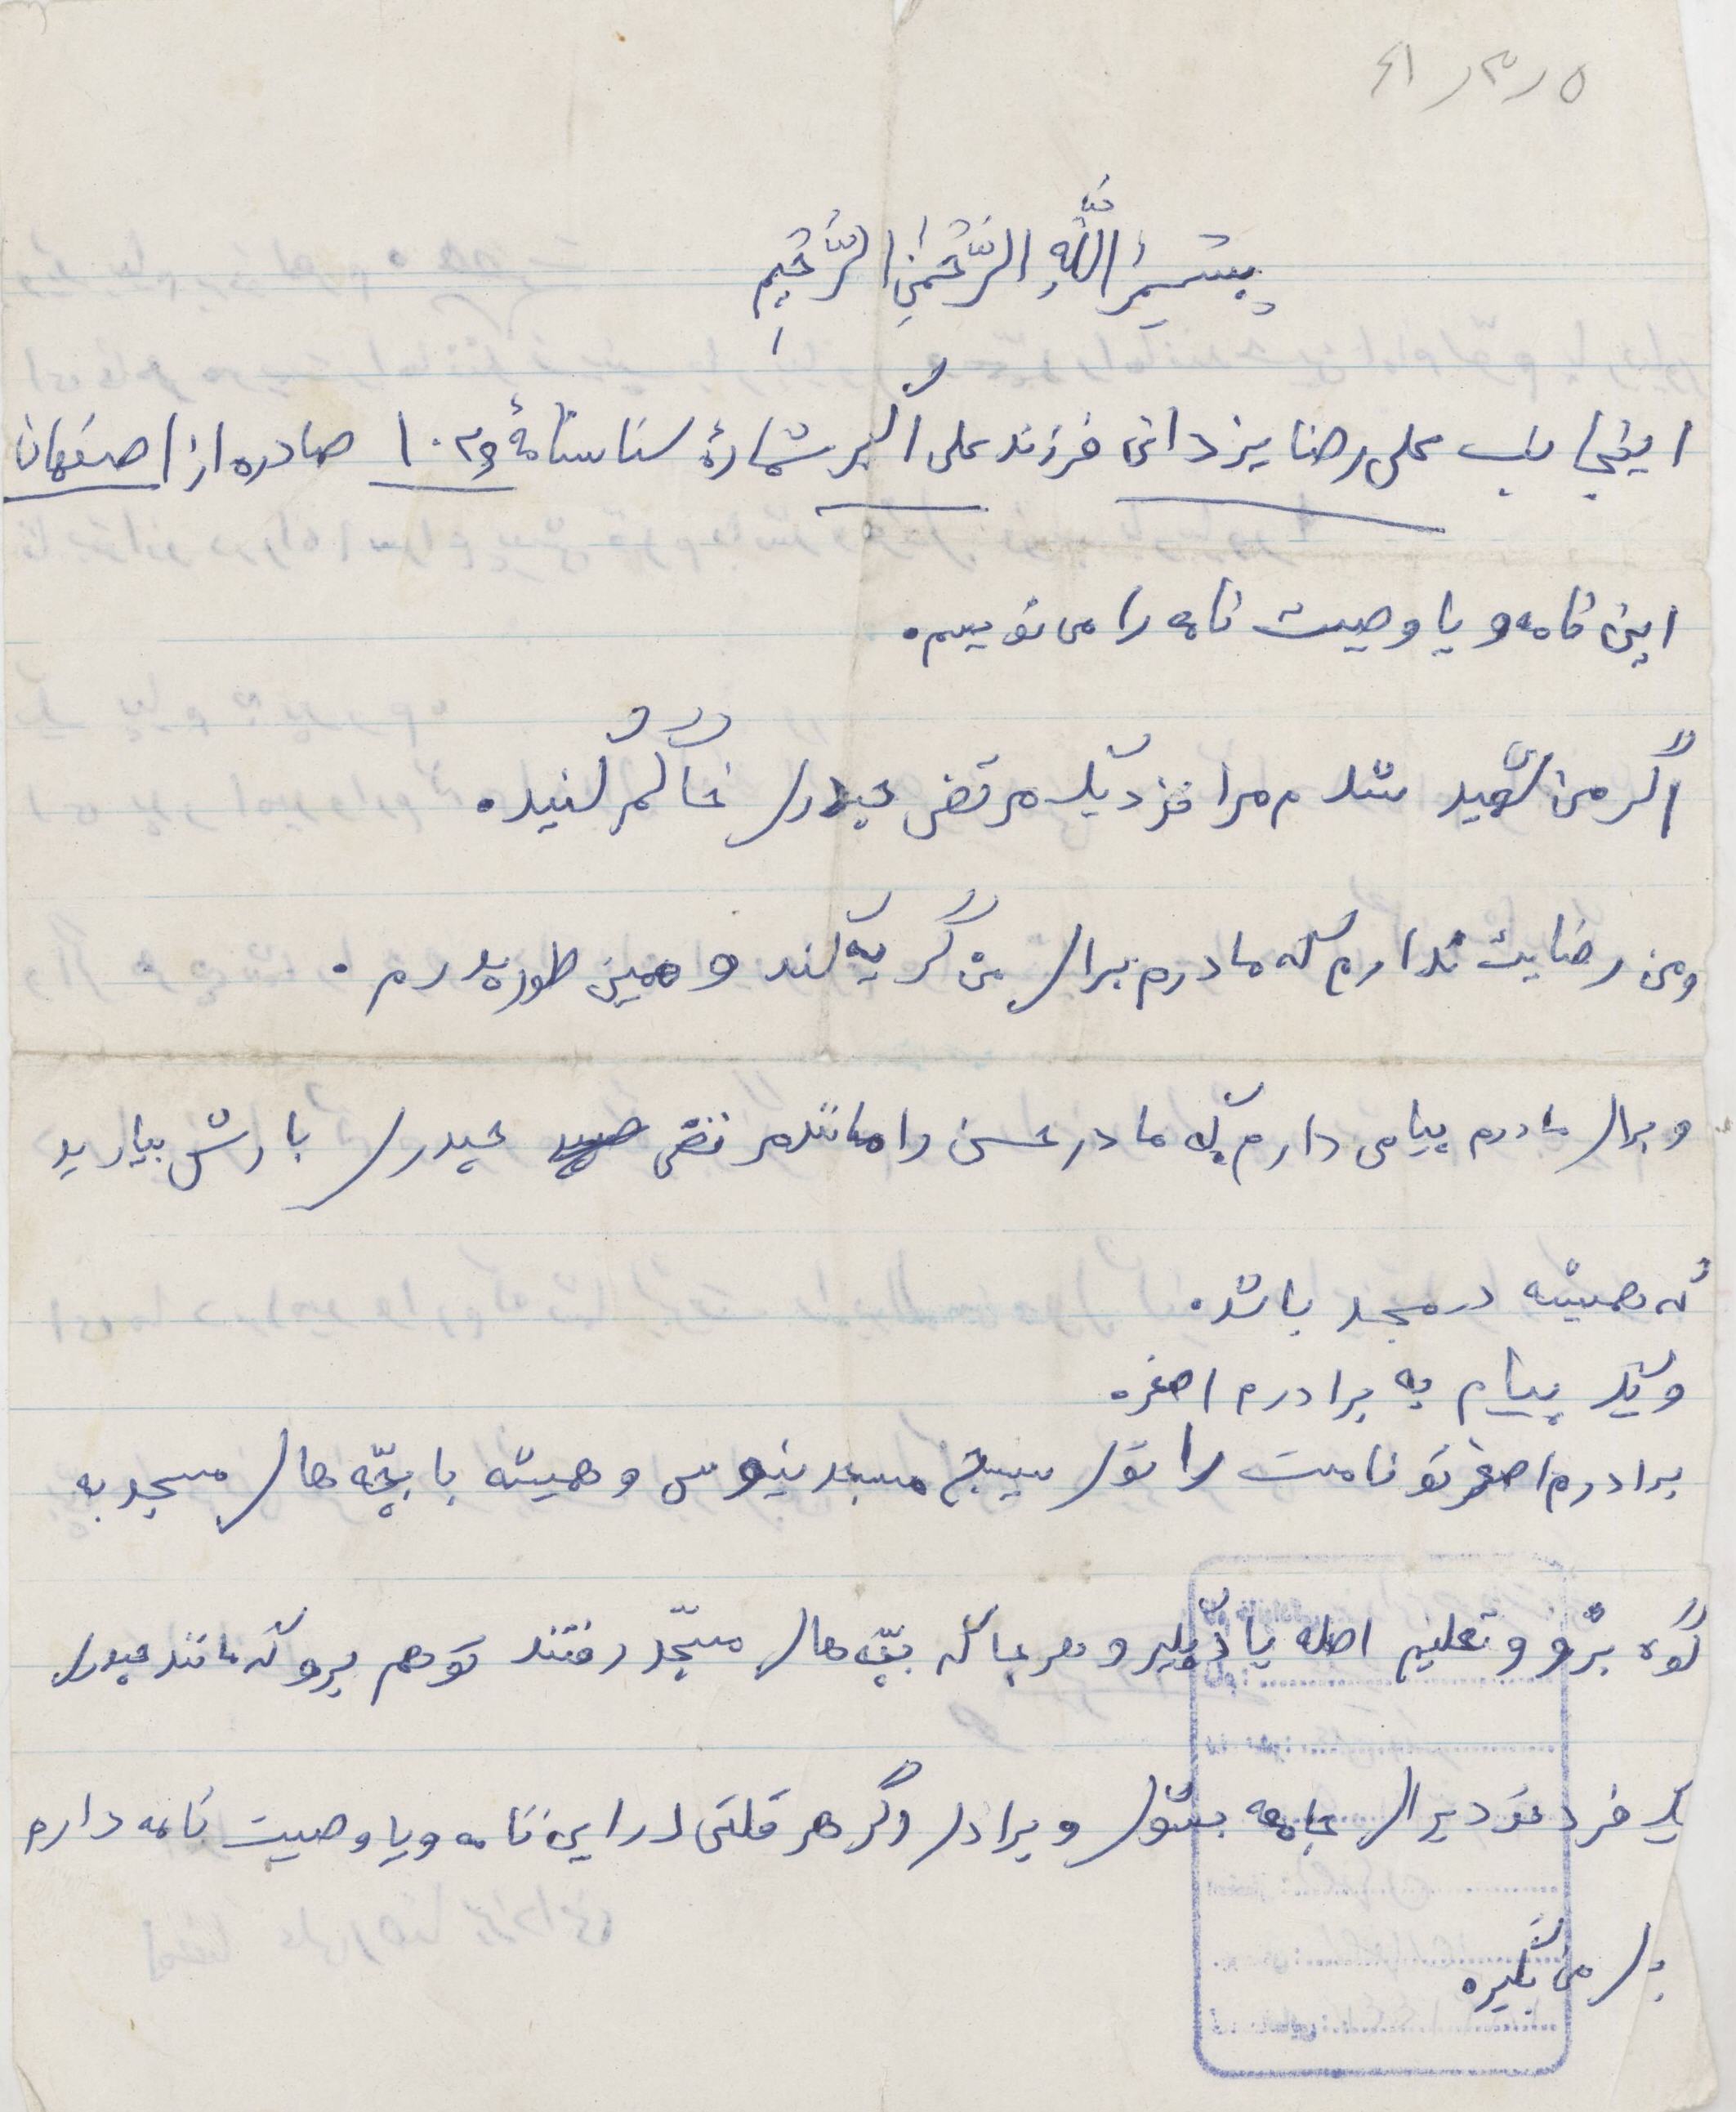 ۶۱٫۳٫۵
بِسْمِ اللَّهِ الرَّحْمٰنِ الرَّحیمِ
اینجانب علی رضا یزدانی فرزند علی اکبر شمارهٔ شناسنامهٔ صادره از اصفهان
این نامه و یا وصیت نامه را می نویسم.
اگر من شهید شدم مرا نزدیک مرتضی عیدی خاکم کنید.
و من رضایت ندارم که مادرم برای من گریه کند و همین طور پدرم.
و برای مادرم پیامی دارم که مادر حسن را مانند مرتضی عیدی بارش بیارید
که همیشه در مسجد باشد.
و یک پیام به برادرم اصغر.
برادرم اصغر تو نامت را توی بسیج مسجد بنویس و همیشه با بچّه های مسجد به
کوه برو و تعلیم یاد بگیر و هر جا که بچّه های مسجد رفتند تو هم برو که مانند عیدی
یک فرد برای جامعه بشوی و برادر اگر هر غلتی در این نامه و یا وصیت نامه دارم
من بگیر.